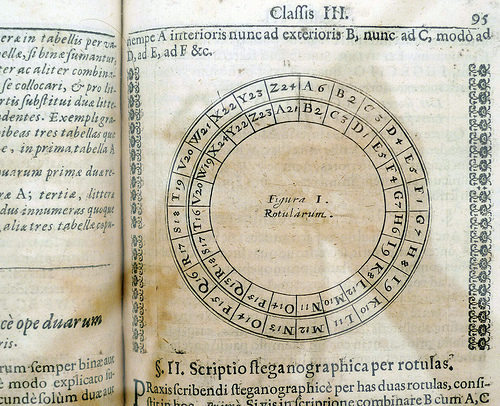 eræ in tabellis per va-
bellæ, si binæ sumantur,
ter ac aliter combina-
se collocari, & pro li-
rtis substitui duæ litte-
identes. Exempli gra-
ibeas tres tabellas quæ
e, in prima tabella A
quarum primæ duæ re-
ræ A; tertiæ, litteræ
dus innumeras quoque
, alia tres tabellæ
cè ope duarum
ris.
rum semper binæ aut
è modo explicato su-
cunde solùm duæ aut
Classis III.
95
nempe A interioris nunc ad exterioris B, nunc ad C, modò ad
D, ad E, ad F &c.
A 6 B 2 C 3 D 4 E 5 F 1 G 7 H 8 I 9 K 10 L 11 M 12 N 13 O 14 P 15 Q 6 R 17 S 18 T 19 V 20 W 21 X 22 Y 23 Z 24
A 21 B 2 C 3 D 1 E 5 F 4 G 7 H 6 I 9 K 8 L 12 M 10 N 11 O 14 P 15 Q 13 R 18 S 17 T 16 V 20 W 19 X 24 Y 22 Z 23
Figura I.
Rotularum.
§. II. Scriptio steganographica per rotulas.
PRaxis scribendi steganographicè per has duas rotulas, consi-
stit in hoc. Primò Si vis in scriptione combinare B cum A, C